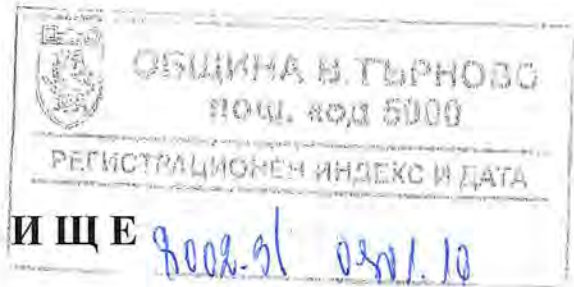 ОБЩИНА В. ТЪРНОВО
пощ. код 5000
РЕГИСТРАЦИОНЕН ИНДЕКС И ДАТА
ИЩЕ